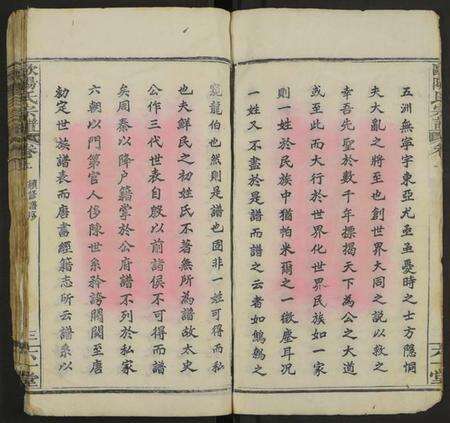 五洲無寧宇東亞尤亟亟憂時之士方隱惻
夫大亂之將至也創世界大同之說以救之
幸吾先聖於數千年標揭天下為公之大道
或至此而大行於世界化世界民族如一家
則一姓於民族中猶帕米爾之一微塵耳況
一姓又不盡於是譜而譜之云者如鷦鷯之
窺龍伯也然則是譜也固非一姓可得而私
也夫鮮民之初姓氏不著無所為譜故太史
公作三代世表自殷以前諸侯不可得而譜
矣周秦以降戶籍掌於公府譜不列於私家
六朝以門第官人侈陳世系矜誇閥閱至唐
勅定世族譜表而唐書經籍志所云譜系以
歐陽氏宗譜
卷
續修譜序
三
六一堂